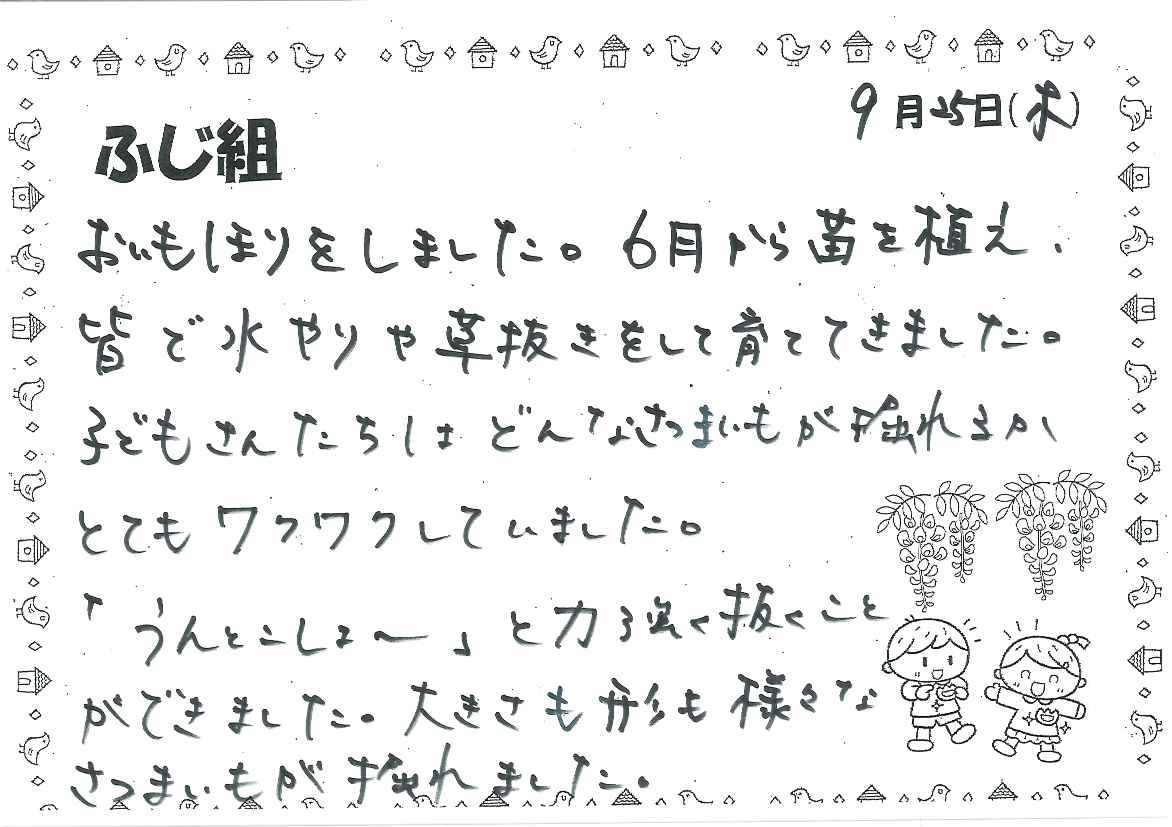 9月25日(木)
ふじ組
おいもほりをしました。6月から苗を植え、
皆で水やりや草抜きをして育ててきました。
子どもさんたちはどんなさつまいもが掘れるか
とてもワクワクしていました。
「うんとこしょ〜」と力強く抜くこと
ができました。大きさも形も様々な
さつまいもが掘れました。